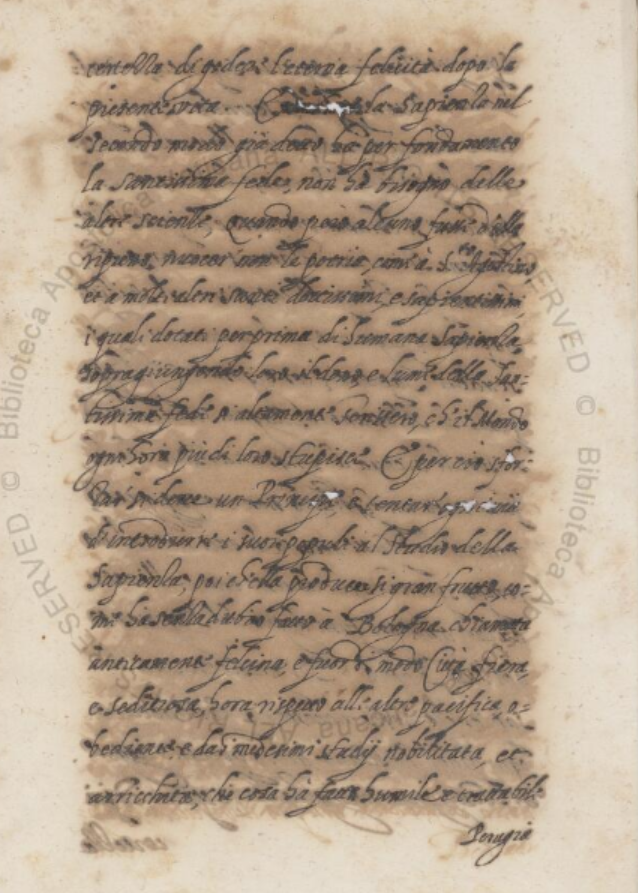 certezza di goder l'eterna felicità dopo la
presente vita. E la Sapienza nel
secondo modo già detto ha per fondamento
la santissima fede, non ha bisogno delle
altre scienze, quando però alcuno fusse d'esse
ripieno, nuocer non le potria, com'a S.to Agostino
et a molti altri santi dottissimi, e sapientissimi
i quali dotati per prima di humana sapienza,
sopragiungendo loro il dono e lume della San-
tissima fede sì altamente sentirno, ch'il Mondo
ogni hora più di loro stupisce. E perciò sfor-
zar si deve un Principe e tentar ogni
d'introdurre i suoi populi al studio della
Sapienza, poi ch'ella produce sì gran frutto, co-
me ha senza dubio fatto à Bologna chiamata
anticamente felsina, e fuor di modo Città fiera,
e seditiosa, hora rispetto all'altre pacifica, o-
bediente, e da i medesimi studij nobilitata, et
arricchita, che cosa ha fatto humile e trattabile
Perugia